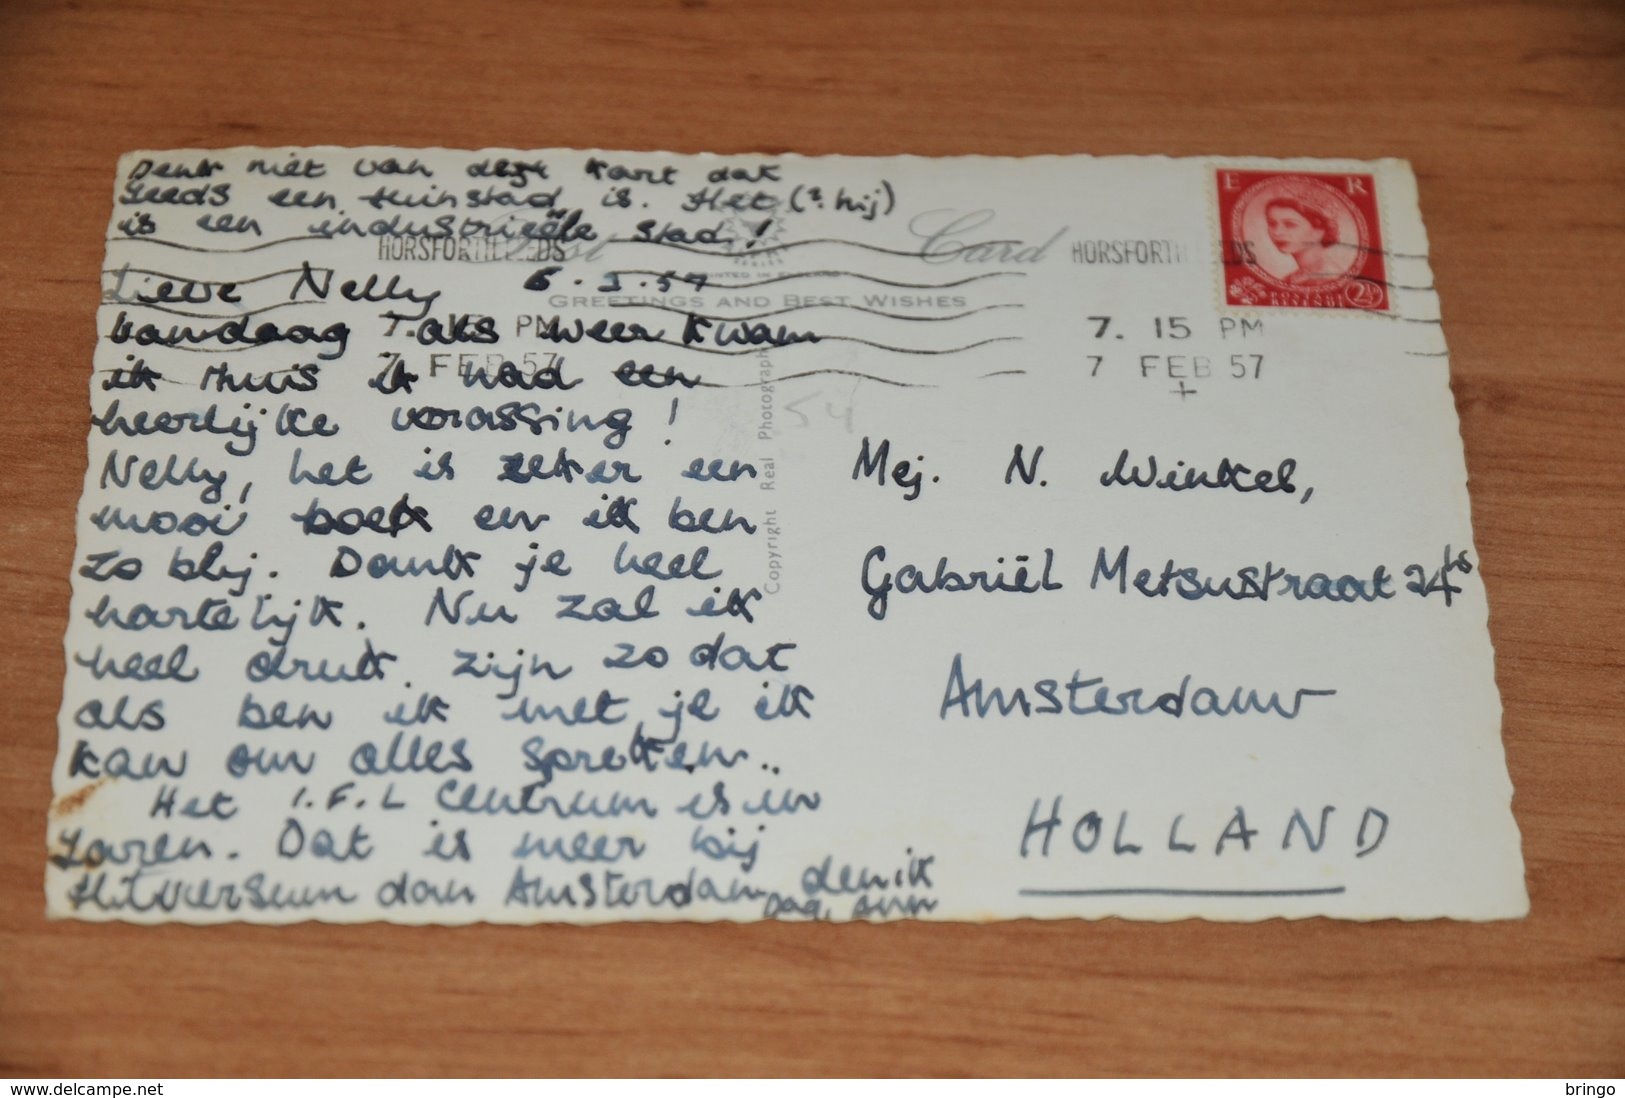 Denk niet van deze kart dat
Leeds een tuinstad is. Het (?. hij)
is een industrieële stad!
Post Card
HORSFORTH LEEDS
HORSFORTH LEEDS
PRINTED IN ENGLAND
GREETINGS AND BEST WISHES
E R
POSTAGE REVENUE
2½
7. 15 PM
7 FEB 57
7. 15 PM
7 FEB 57
Copyright Real Photograph
54
Lieve Nelly 6.2.57
Vandaag als weer kwam
ik thuis ik had een
heerlijke vorassing!
Nelly, het is zeker een
mooi boek en ik ben
zo blij. Dank je heel
hartelijk. Nu zal ik
heel druk zijn zo dat
als ben ik met je ik
kan om alles spreken..
Het I.F.L Centrum is in
Laren. Dat is meer bij
Hilversum dan Amsterdam denk ik
Dag, Ann
Mej. N. Winkel,
Gabriël Metsustraat 24hs
Amsterdam
HOLLAND
delcampe.net
bringo